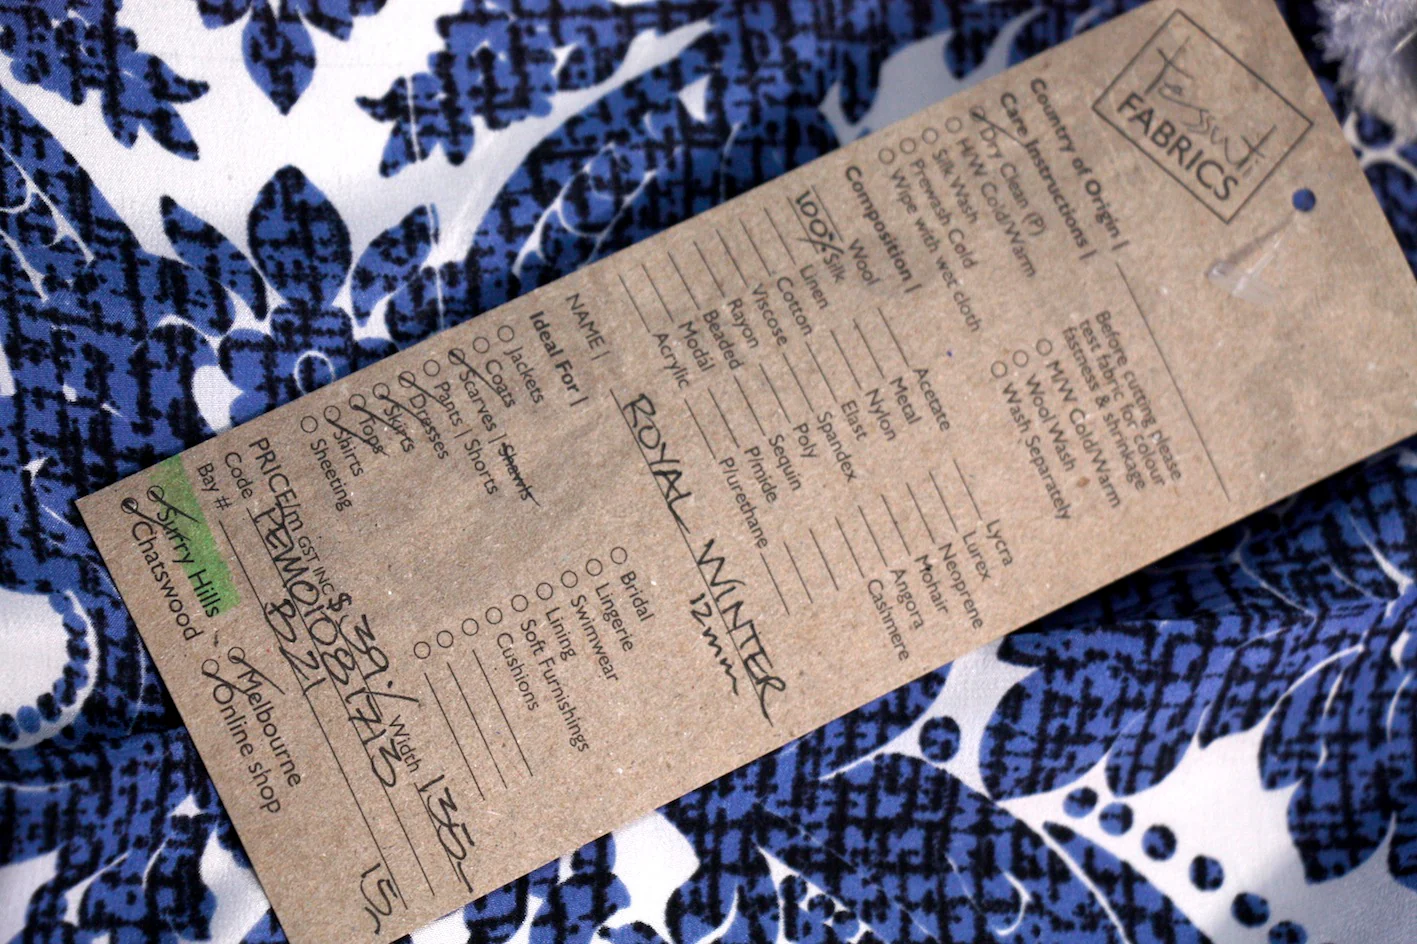 Tessuti
FABRICS
Country of Origin |
Care Instructions |
Dry Clean (P)
H/W Cold/Warm
Silk Wash
Prewash Cold
Wipe with wet cloth
Before cutting please
test fabric for colour
fastness & shrinkage
M/W Cold/Warm
Wool Wash
Wash Separately
Composition |
Wool
100% Silk
Linen
Cotton
Viscose
Rayon
Beaded
Modal
Acrylic
Acetate
Metal
Nylon
Elast
Spandex
Poly
Sequin
Pimide
Plurethane
Lycra
Lurex
Neoprene
Mohair
Angora
Cashmere
NAME | ROYAL WINTER
12mm
Ideal For |
Jackets
Coats
Scarves | Shawls
Pants | Shorts
Dresses
Skirts
Tops
Shirts
Sheeting
Bridal
Lingerie
Swimwear
Lining
Soft Furnishings
Cushions
PRICE/m GST INC $39./ Width 135
Code
Bay # B21
15
Surry Hills
Chatswood
Melbourne
Online shop